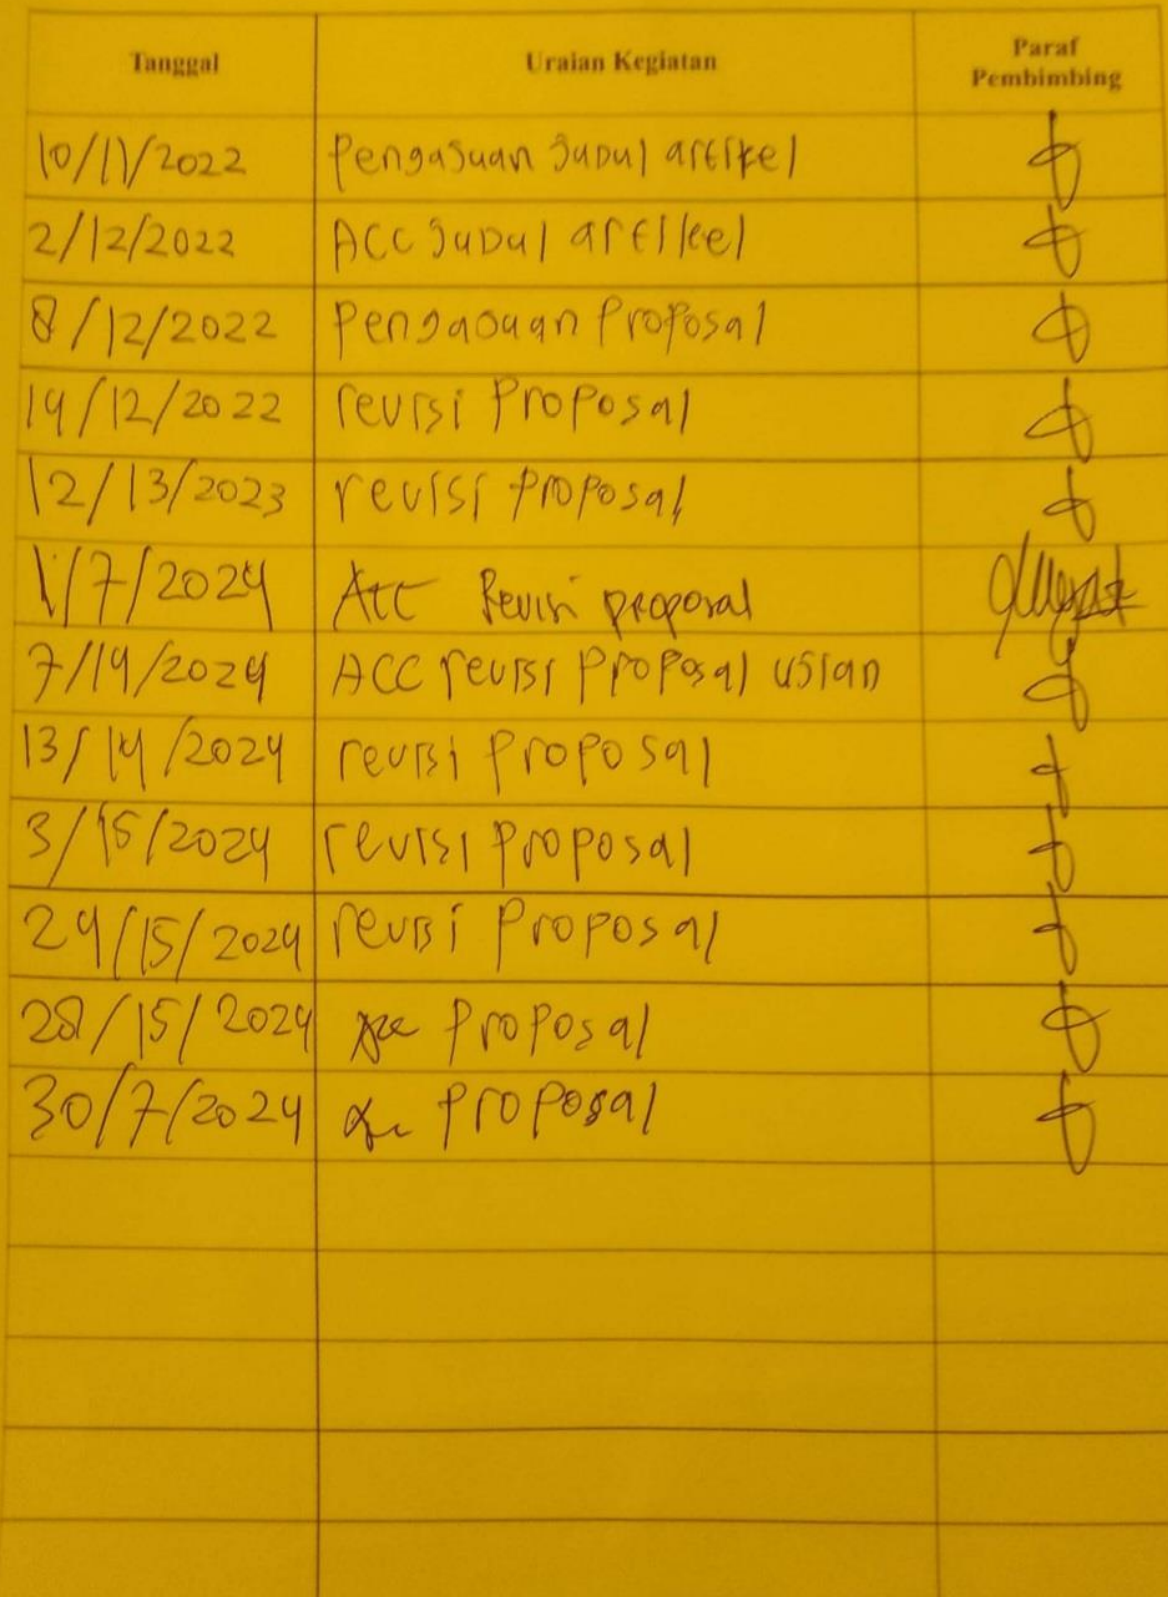 Tanggal Uraian Kegiatan Paraf
Pembimbing
10/11/2022 Pengajuan Judul artikel
2/12/2022 ACC Judul artikel
8/12/2022 Pengajuan Proposal
14/12/2022 revisi Proposal
12/13/2023 revisi Proposal
1/7/2024 Acc Revisi proposal
7/14/2024 ACC revisi Proposal ujian
13/14/2024 revisi Proposal
3/15/2024 revisi Proposal
24/15/2024 revisi Proposal
28/15/2024 Acc Proposal
30/7/2024 Proposal